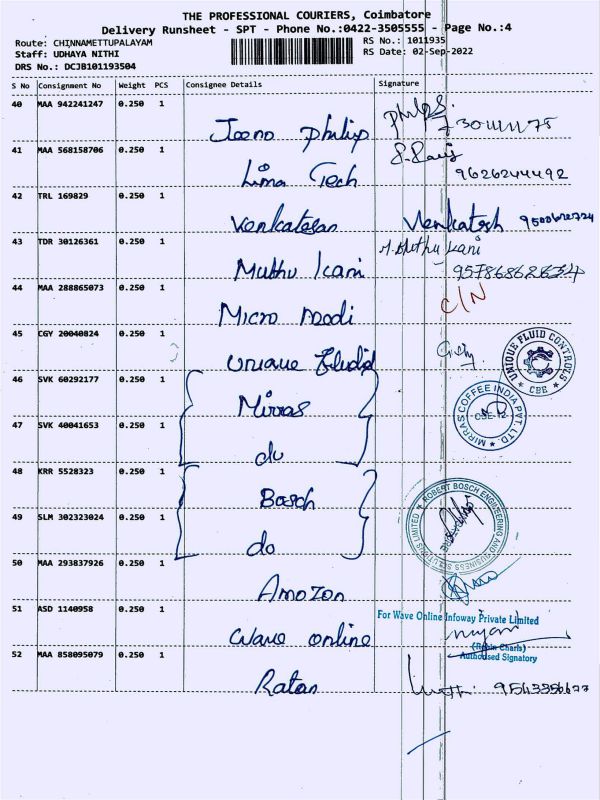 THE PROFESSIONAL COURIERS, Coimbatore
Delivery Runsheet - SPT - Phone No.:0422-3505555 - Page No.:4
Route: CHINNAMETTUPALAYAM RS No.: 1011935
Staff: UDHAYA NITHI RS Date: 02-Sep-2022
DRS No.: DCJB101193504
S No Consignment No Weight PCS Consignee Details Signature
40 MAA 942241247 0.250 1
Jeeno Philip
41 MAA 568158706 0.250 1
Lima Tech 9626244492
42 TRL 169829 0.250 1
Venkatesan Venkatesh
43 TDR 30126361 0.250 1
Muthu Kani
44 MAA 288865073 0.250 1 C/N
Micro Medi
45 CGY 20040824 0.250 1
Unique Fluid UNIQUE FLUID CONTROLS CBE
46 SVK 60292177 0.250 1
Mirras MIRRAS COFFEE INDIA PVT. LTD. CBE-12
47 SVK 40041653 0.250 1
do
48 KRR 5528323 0.250 1
Bosch ROBERT BOSCH ENGINEERING AND BUSINESS SOLUTIONS LIMITED
49 SLM 302323024 0.250 1
do
50 MAA 293837926 0.250 1
Amozon
51 ASD 1140958 0.250 1 For Wave Online Infoway Private Limited
Wave online
(Robin Charls)
Authorised Signatory
52 MAA 858095079 0.250 1
Ratan